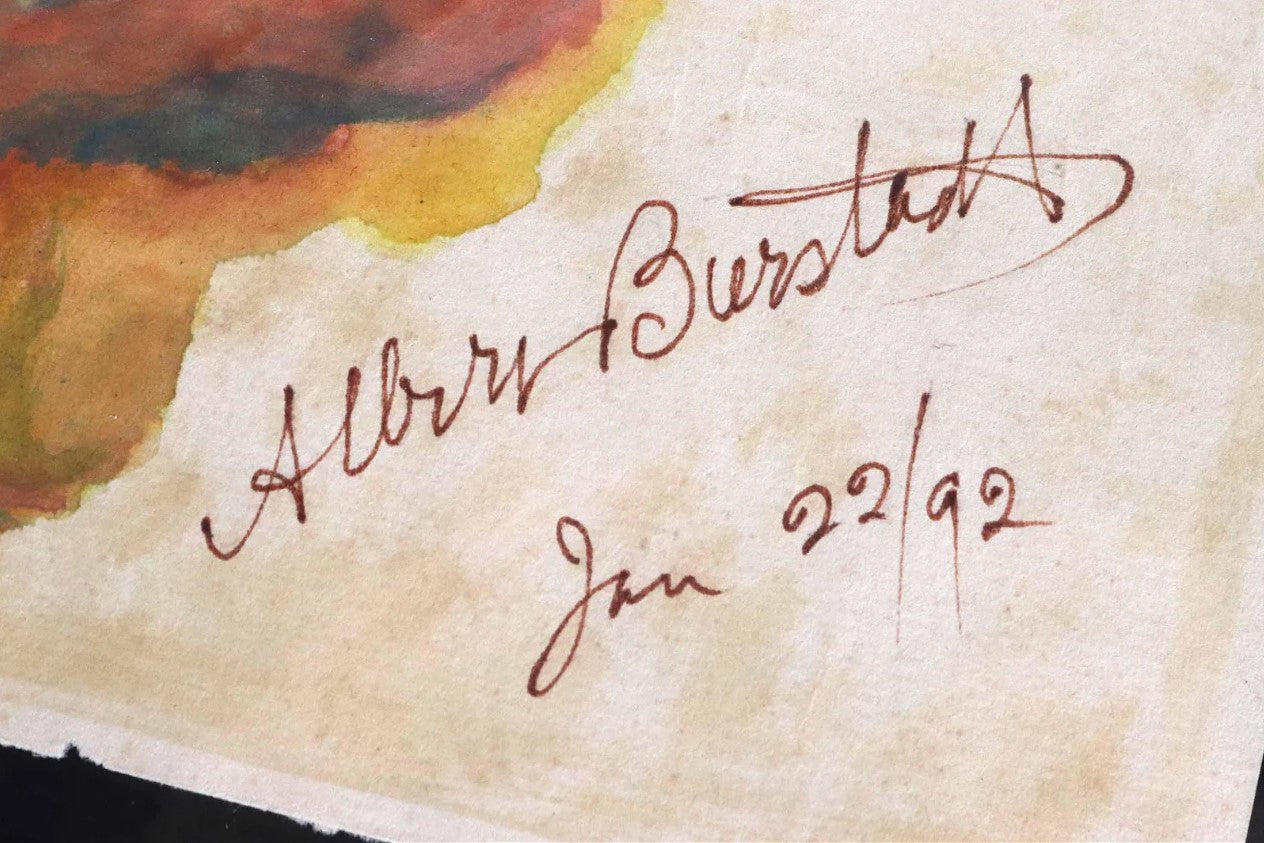 Albert Bierstadt
Jan 22/92